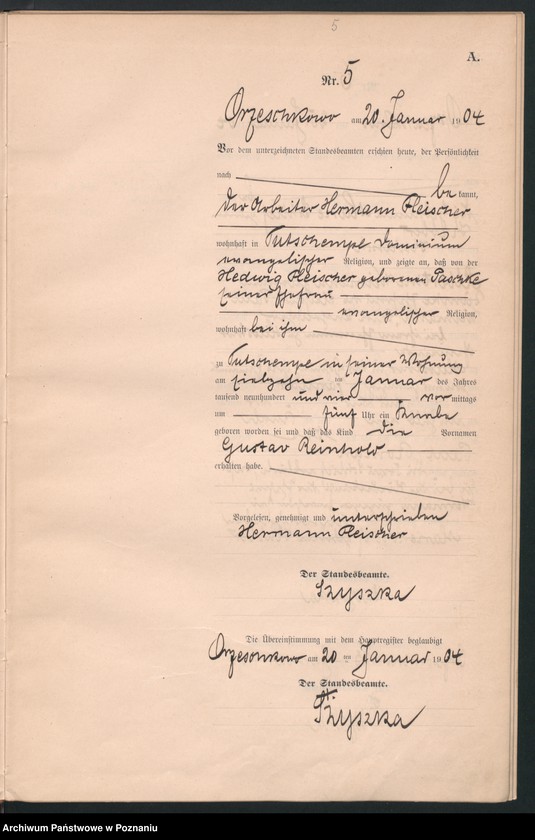 5
A.
Nr. 5
Orzeschkowo am 20. Januar 1904
Vor dem unterzeichneten Standesbeamten erschien heute, der Persönlichkeit
nach be kannt,
der Arbeiter Hermann Fleischer
wohnhaft in Tutschempe Dominium
evangelischer Religion, und zeigte an, daß von der
Hedwig Fleischer geborenen Paschke
seiner Ehefrau
evangelischer Religion,
wohnhaft bei ihm
zu Tutschempe in seiner Wohnung
am ten Januar des Jahres
tausend neunhundert und vier vor mittags
um fünf Uhr ein Knabe
geboren worden sei und daß das Kind die Vornamen
Gustav Reinhold
erhalten habe.
Vorgelesen, genehmigt und unterschrieben
Hermann Fleischer
Der Standesbeamte.
Szyszka
Die Übereinstimmung mit dem Hauptregister beglaubigt
Orzeschkowo am 20 ten Januar 1904
Der Standesbeamte.
Szyszka
Archiwum Państwowe w Poznaniu